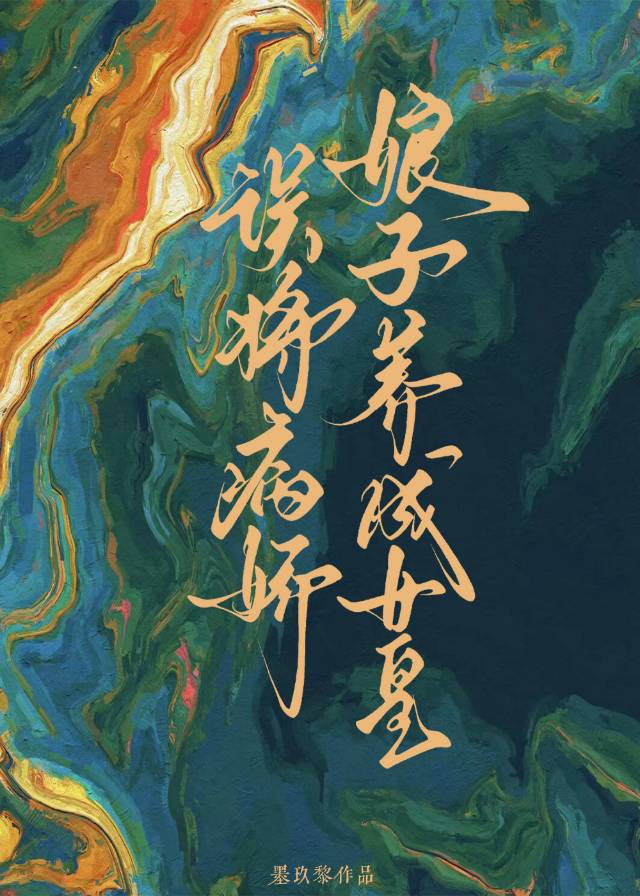 误将病娇
娘子养成女皇
墨玖黎作品